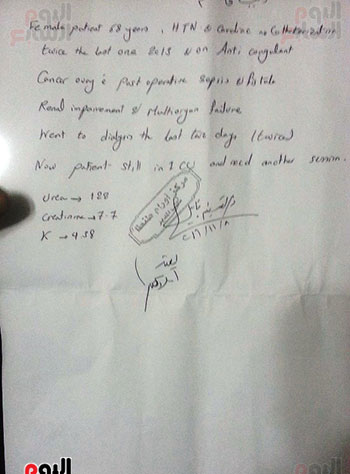 اليوم
اليوم السابع
Female patient 68 years, HTN & Cardiac Catheterization
twice the last one 2015 Non Anti coagulant
Cancer & post operative sepsis & fistula
Renal impairment & Multiorgan failure
Went to dialysis the last two days (twice)
Now patient still in ICU and need another session.
Urea → 188
Creatinine → 7.7
K → 4.38
مركز أورام
اليوم
اليوم